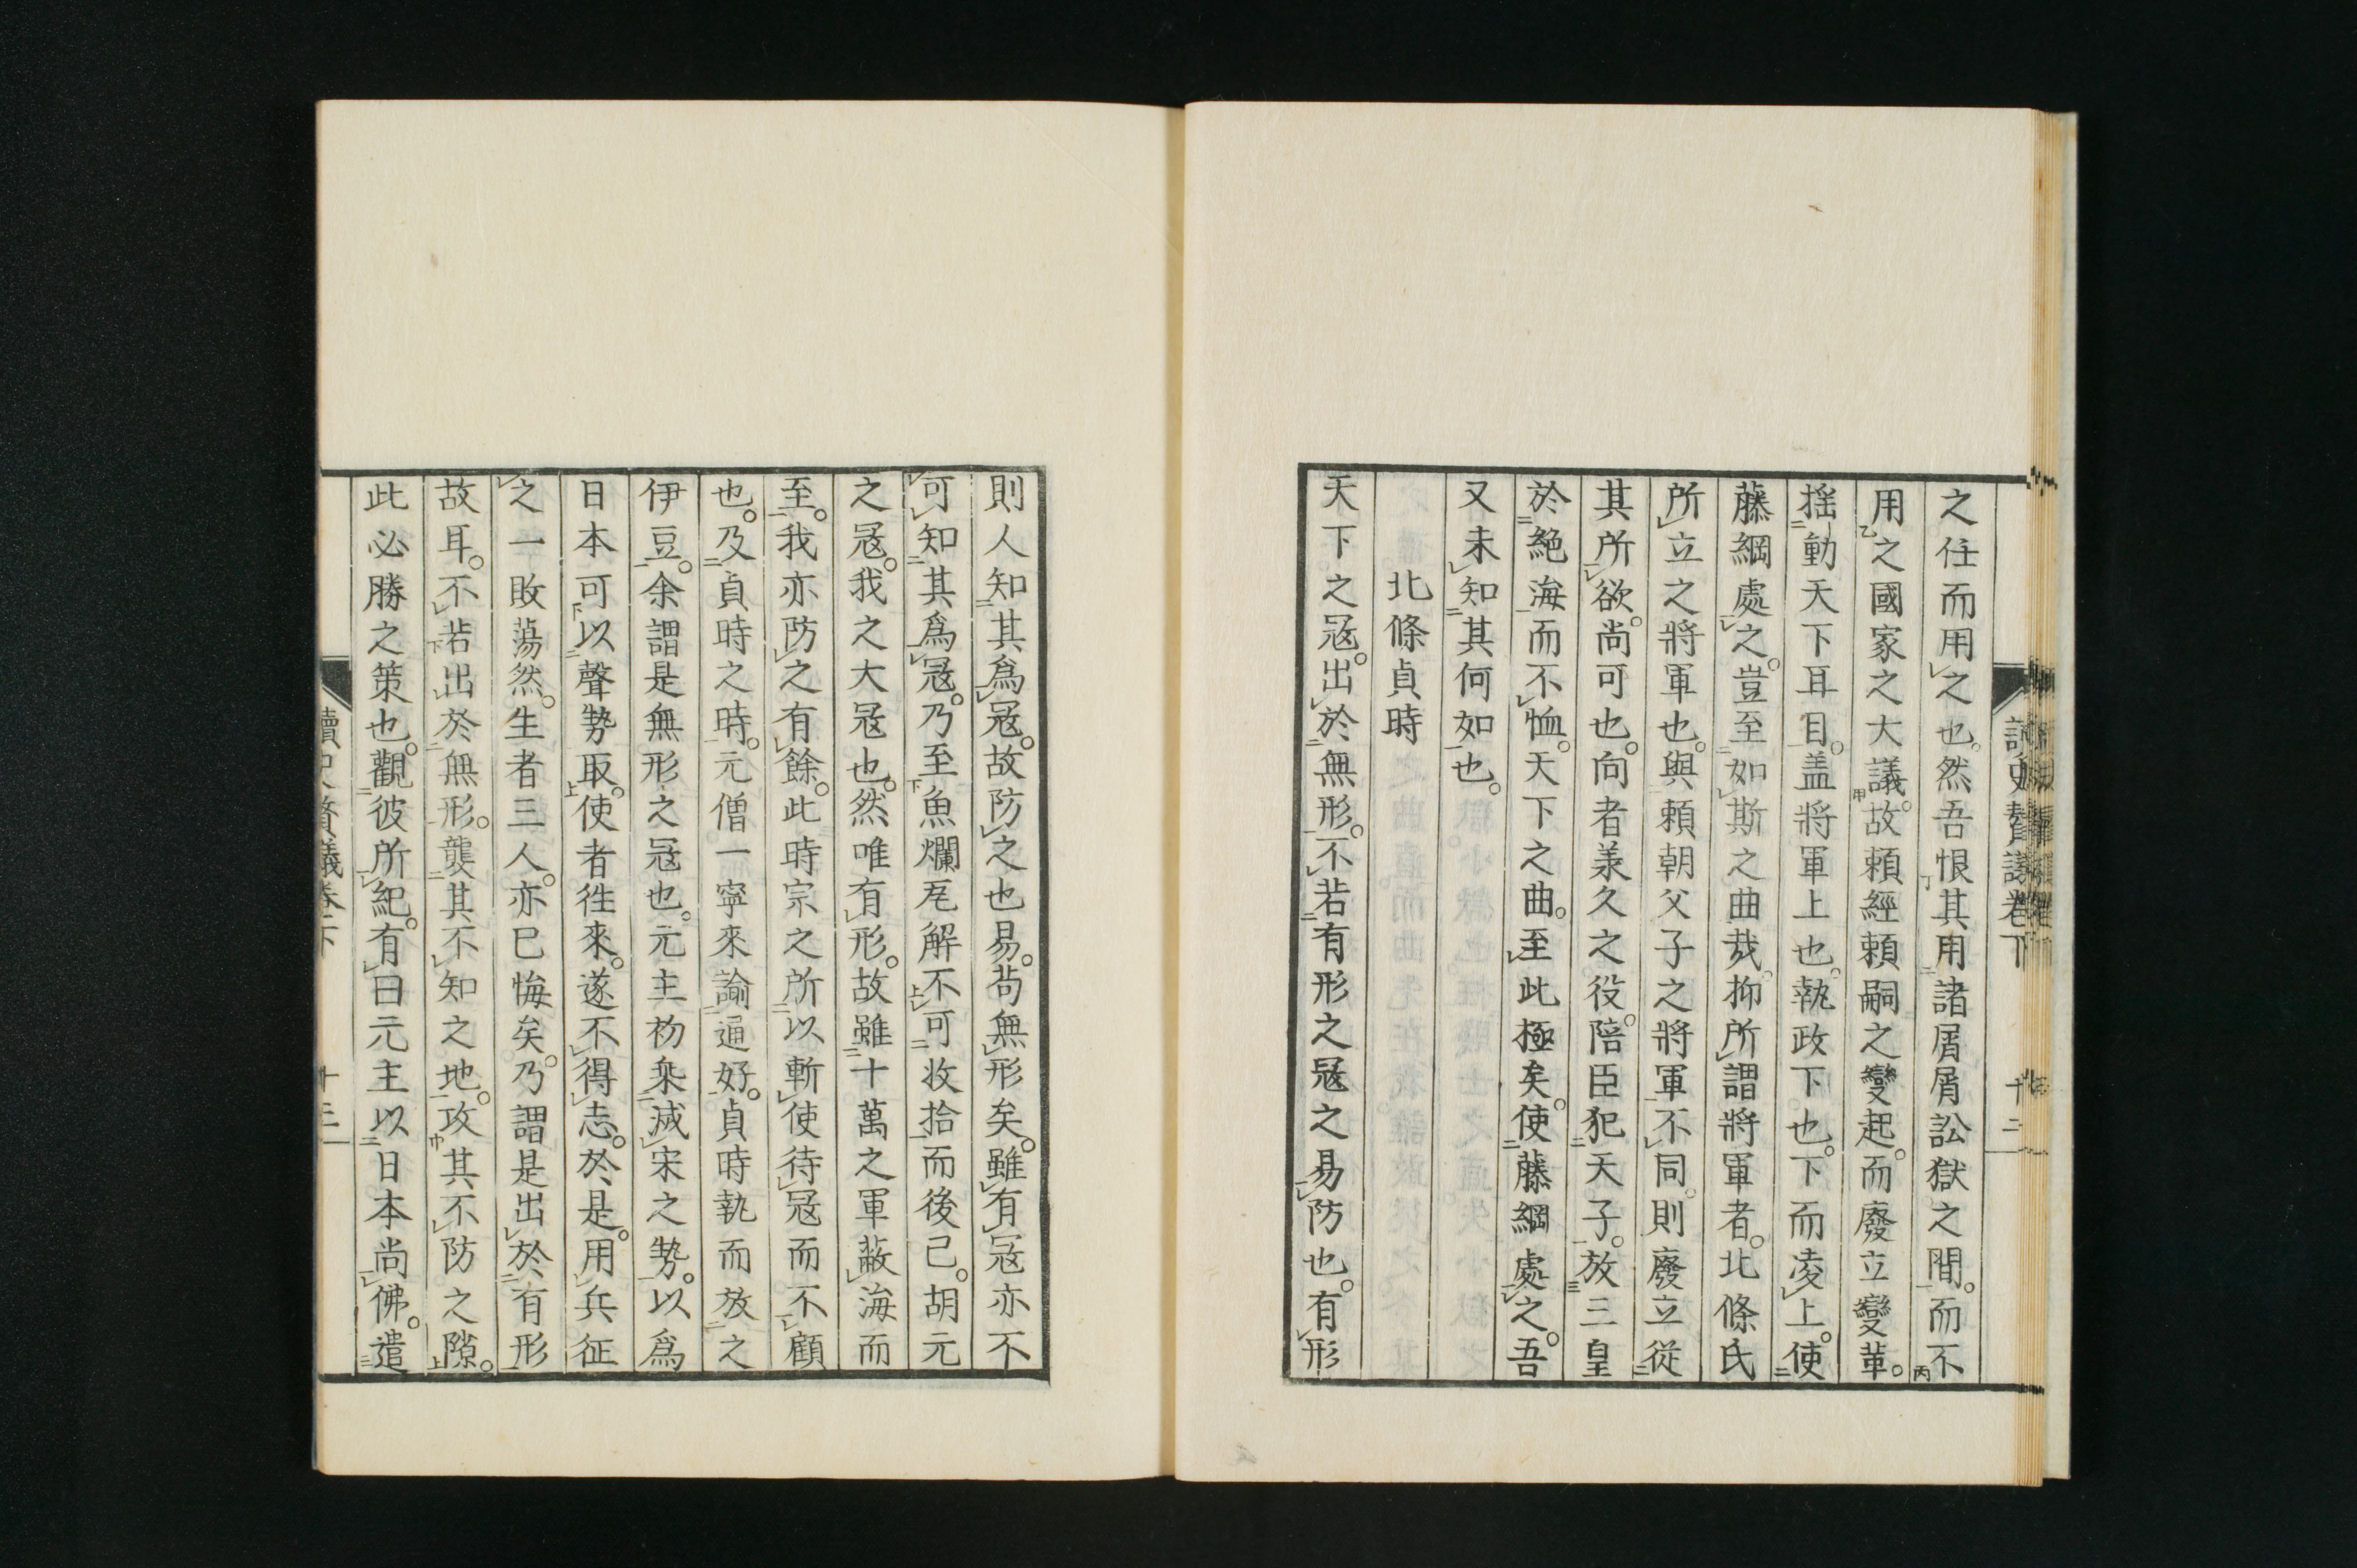 之任而用之也。然吾恨其用諸屑屑訟獄之間。而不
用之國家之大議。故頼經頼嗣之變起。而廢立變革。
揺動天下耳目。盖將軍上也。執政下也。下而凌上。使
藤綱處之。豈至如斯之曲㦲。抑所謂將軍者。北條氏
所立之將軍也。與頼朝父子之將軍不同。則廢立從
其所欲。尚可也。向者羕久之役。陪臣犯天子。放三皇
於絶海而不恤。天下之曲。至此極矣。使藤綱處之。吾
又未知其何如也。
北條貞時
天下之冦。出於無形。不若有形之冦之易防也。有形
則人知其爲冦。故防之也易。茍無形矣。雖有冦亦不
可知其爲冦。乃至魚爛瓦解不可收拾而後已。胡元
之冦。我之大冦也。然唯有形。故雖十萬之軍蔽海而
至。我亦防之有餘。此時宗之所以斬使待冦而不顧
也。及貞時之時。元僧一寧來諭通好。貞時執而放之
伊豆。余謂是無形之冦也。元主初乗滅宋之勢。以爲
日本可以聲勢取。使者徃來。遂不得志。於是。用兵征
之一敗蕩然。生者三人。亦已悔矣。乃謂是出於有形
故耳。不若出於無形。襲其不知之地。攻其不防之隙。
此必勝之策也。觀彼所紀。有曰元主以日本尚佛。遣
讀史贅議卷下
十三